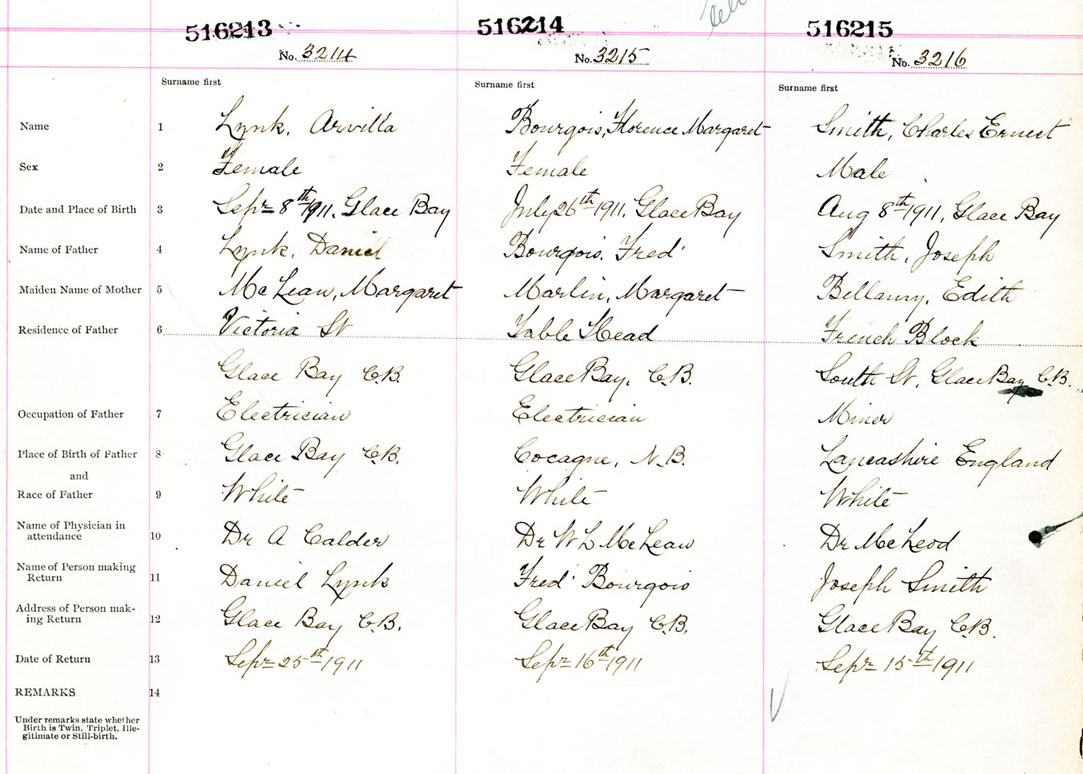 516213 516214 516215
No. 3214 No. 3215 No. 3216
Surname first Surname first Surname first
Name 1 Lynk, Arvilla Bourgois, Florence Margaret Smith, Charles Ernest
Sex 2 Female Female Male
Date and Place of Birth 3 Sepr 8th 1911, Glace Bay July 26th 1911, Glace Bay Aug 8th 1911, Glace Bay
Name of Father 4 Lynk, Daniel Bourgois, Fred Smith, Joseph
Maiden Name of Mother 5 McLean, Margaret Marlin, Margaret Bellamy, Edith
Residence of Father 6 Victoria St Table Head French Block
Glace Bay C.B. Glace Bay, C.B. South St, Glace Bay C.B.
Occupation of Father 7 Electrician Electrician Miner
Place of Birth of Father 8 Glace Bay C.B. Cocagne, N.B. Lancashire England
and
Race of Father 9 White White White
Name of Physician in
attendance 10 Dr A Calder Dr W L McLean Dr McLeod
Name of Person making
Return 11 Daniel Lynk Fred Bourgois Joseph Smith
Address of Person mak-
ing Return 12 Glace Bay C.B. Glace Bay C.B. Glace Bay C.B.
Date of Return 13 Sepr 25th 1911 Sepr 16th 1911 Sepr 15th 1911
REMARKS 14
Under remarks state whether
Birth is Twin, Triplet, Ille-
gitimate or Still-birth.